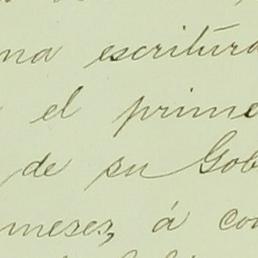 na escritura
el prime
de su Gob
meses, á con